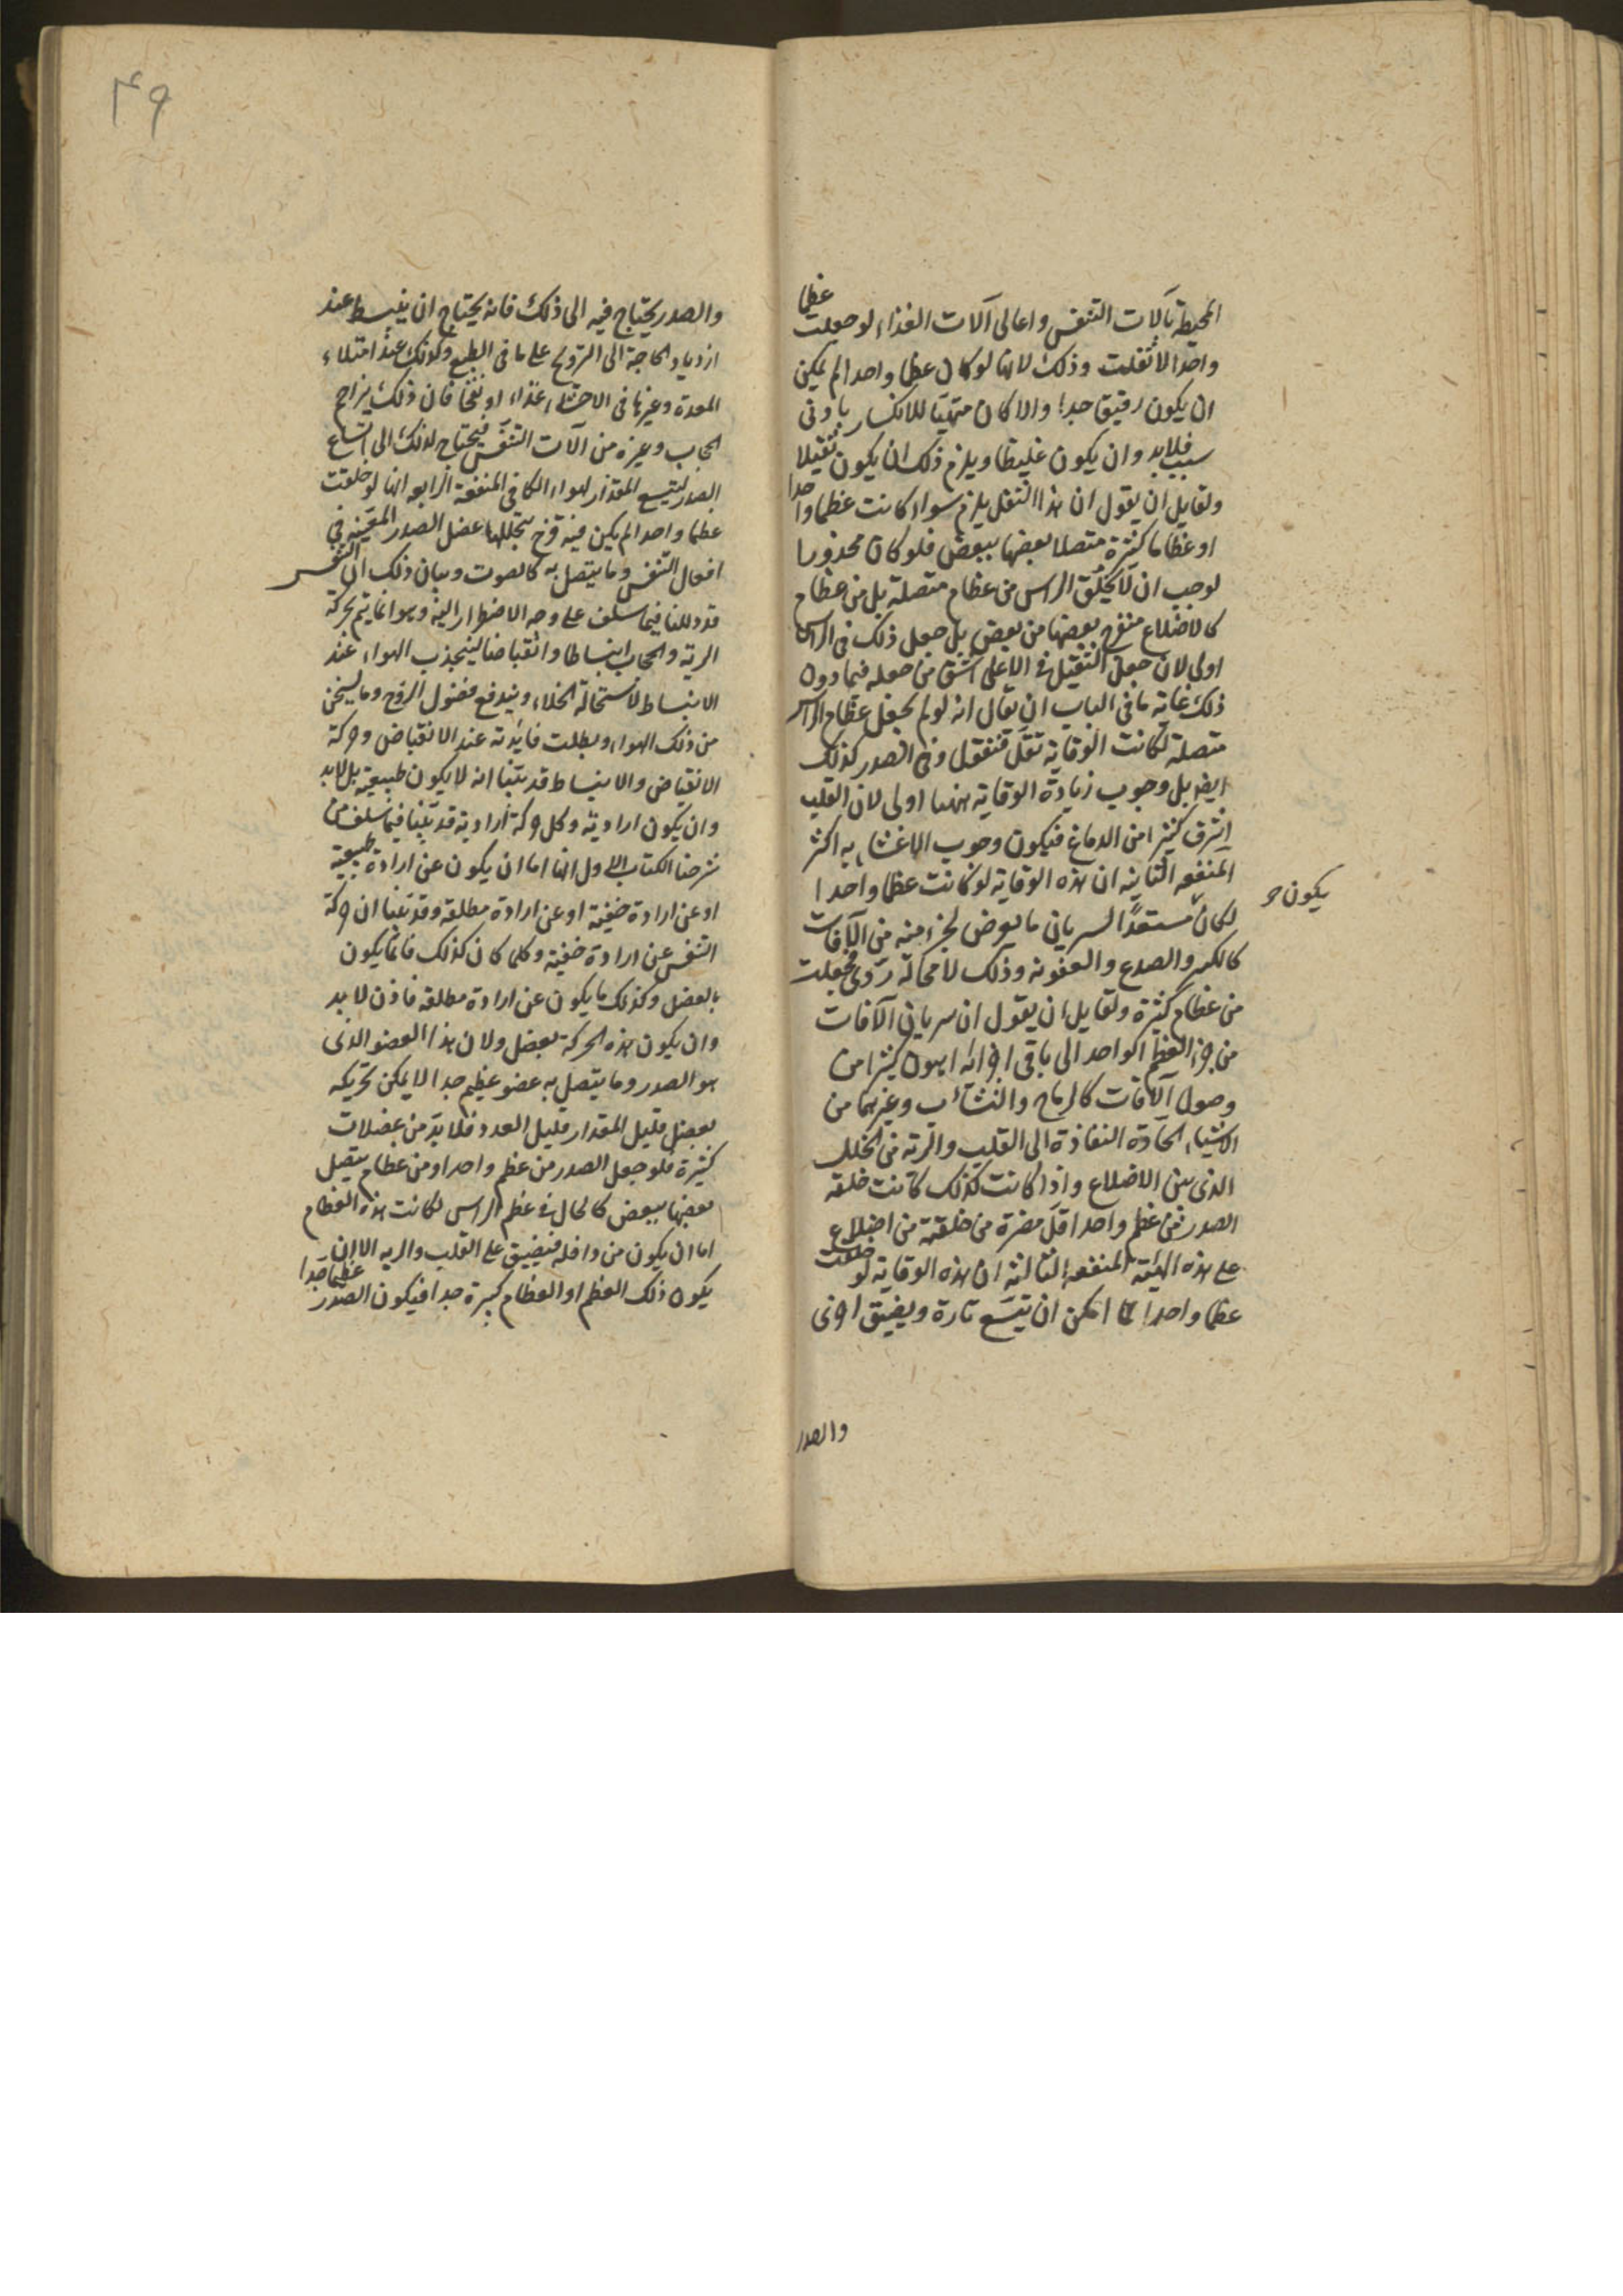 المحيطة بآلات التنفس واعالى آلات الغذاء لو جعلت عظما
واحدا لاثقلت وذلك لانها لو كان عظما واحدا لم يمكن
ان يكون رقيق جدا والا كان متهيئا للانكسار بادنى
سبب فلابد وان يكون غليظا ويلزم ذلك ان يكون ثقيلا
ولقايل ان يقول ان هذا الثقل يلزم سواء كانت عظما واحدا
او عظاما كثيرة متصلا بعضها ببعض فلو كان محذورا
لوجب ان لا يخلق الراس من عظام متصلة بل من عظام
كالاضلاع منفرج بعضها من بعض بل جعل ذلك فى الراس
اولى لان جعل الثقيل فى الاعلى اشق من جعله فيما دون
ذلك غاية ما فى الباب ان يقال انه لو لم يجعل عظام الراس
متصلة لكانت الوقاية تقل فنقول وفى الصدر كذلك
ايضا بل وجوب زيادة الوقاية ههنا اولى لان القلب
اشرف كثيرا من الدماغ فيكون وجوب الاعتناء به اكثر
المنفعه الثانيه ان هذه الوقاية لو كانت عظما واحدا
يكون
لكان مستعدا لسريان ما يعرض لجزء منه من الآفات
كالكسر والصدع والعفونه وذلك لا محالة ردى فجعلت
من عظام كثيرة ولقايل ان يقول ان سريان الآفات
من جزء العظم الواحد الى باقى اجزائه اهون كثيرا من
وصول الآفات كالرماح والنشاب وغيرهما من
الاشياء الحادة النفاذة الى القلب والرئة من الخلل
الذى بين الاضلاع واذا كانت كذلك كانت خلقه
الصدر من عظم واحد اقل مضرة من خلقته من اضلاع
على هذه الهيئة المنفعه الثالثه ان هذه الوقاية لو خلقت
عظما واحدا لما امكن ان يتسع تارة ويضيق اخرى
والصدر
٤٩
والصدر يحتاج فيه الى ذلك فانه يحتاج ان ينبسط عند
ازدياد الحاجة الى التروح على ما فى الطبع وكذلك عند امتلاء
المعدة وغيرها فى الاحشاء غذاء او نفخا فان ذلك يزاحم
الحجاب وغيره من آلات التنفس فيحتاج لذلك الى اتساع
الصدر ليتسع المقدار لهواء الكافى المنفعة الرابعه انها لو خلقت
عظما واحدا لم يكن فيه فرج يتخللها عضل الصدر المعينه فى
افعال التنفس وما يتصل به كالصوت وبيان ذلك ان التنفس
قد دللنا فيما سلف على وجه الاضطرار اليه وهو انما يتم بحركة
الرية والحجاب انبساطا وانقباضا لينجذب الهواء عند
الانبساط لاستحالة الخلاء ويندفع فضول الروح وما يسخن
من ذلك الهواء وبطلت فائدته عند الانقباض وحركة
الانقباض والانبساط قد بينا انه لا يكون طبيعية بل لابد
وان يكون ارادية وكل حركة ارادية قد بينا فيما سلف من
شرحنا الكتاب الاول انها اما ان يكون عن ارادة طبيعية
او عن ارادة خفية او عن ارادة مطلقة وقد بينا ان حركة
التنفس عن ارادة خفية وكلما كان كذلك فانما يكون
بالعضل وكذلك ما يكون عن ارادة مطلقه فاذن لابد
وان يكون هذه الحركة بعضل ولان هذا العضو الذى
هو الصدر وما يتصل به عضو عظيم جدا لا يمكن تحريكه
بعضل قليل المقدار قليل العدد فلا بد من عضلات
كثيرة فلو جعل الصدر من عظم واحد او من عظام يتصل
بعضها ببعض كالحال فى عظم الراس لكانت هذه العظام
اما ان يكون من داخله فيضيق على القلب والريه الا ان
يكون ذلك العظم او العظام كبيرة جدا فيكون الصدر عظيما جدا